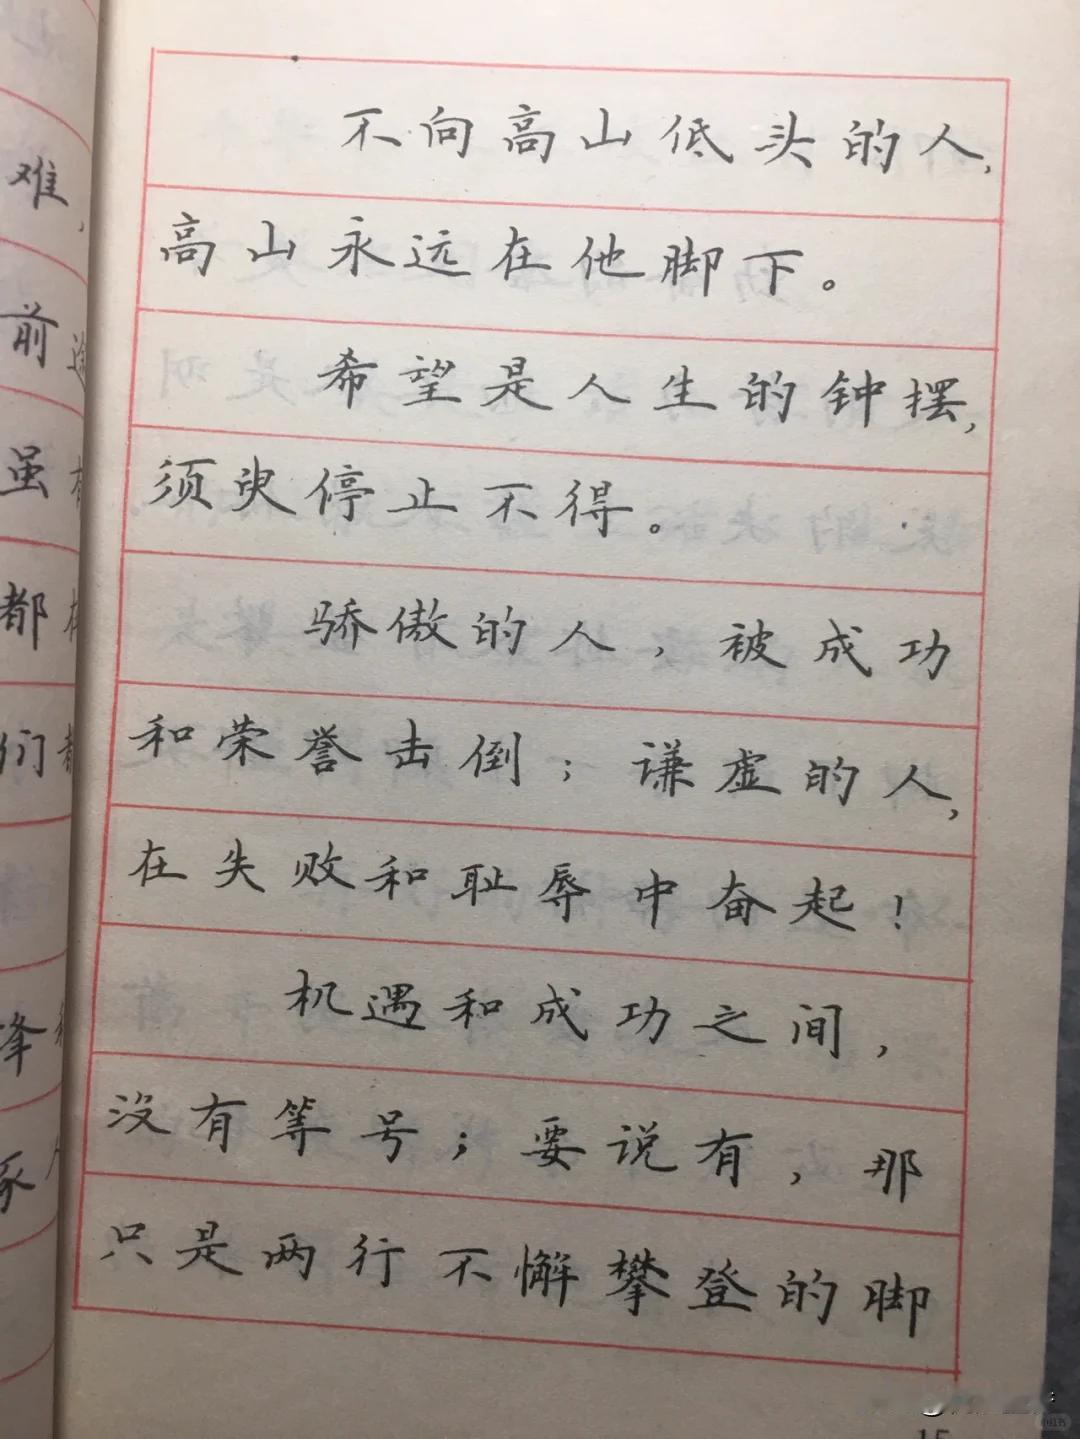 不向高山低头的人,
高山永远在他脚下。
希望是人生的钟摆,
须臾停止不得。
骄傲的人,被成功
和荣誉击倒;谦虚的人,
在失败和耻辱中奋起!
机遇和成功之间,
没有等号;要说有,那
只是两行不懈攀登的脚
难,
前途
虽有
都
们都
锋
15
小红书